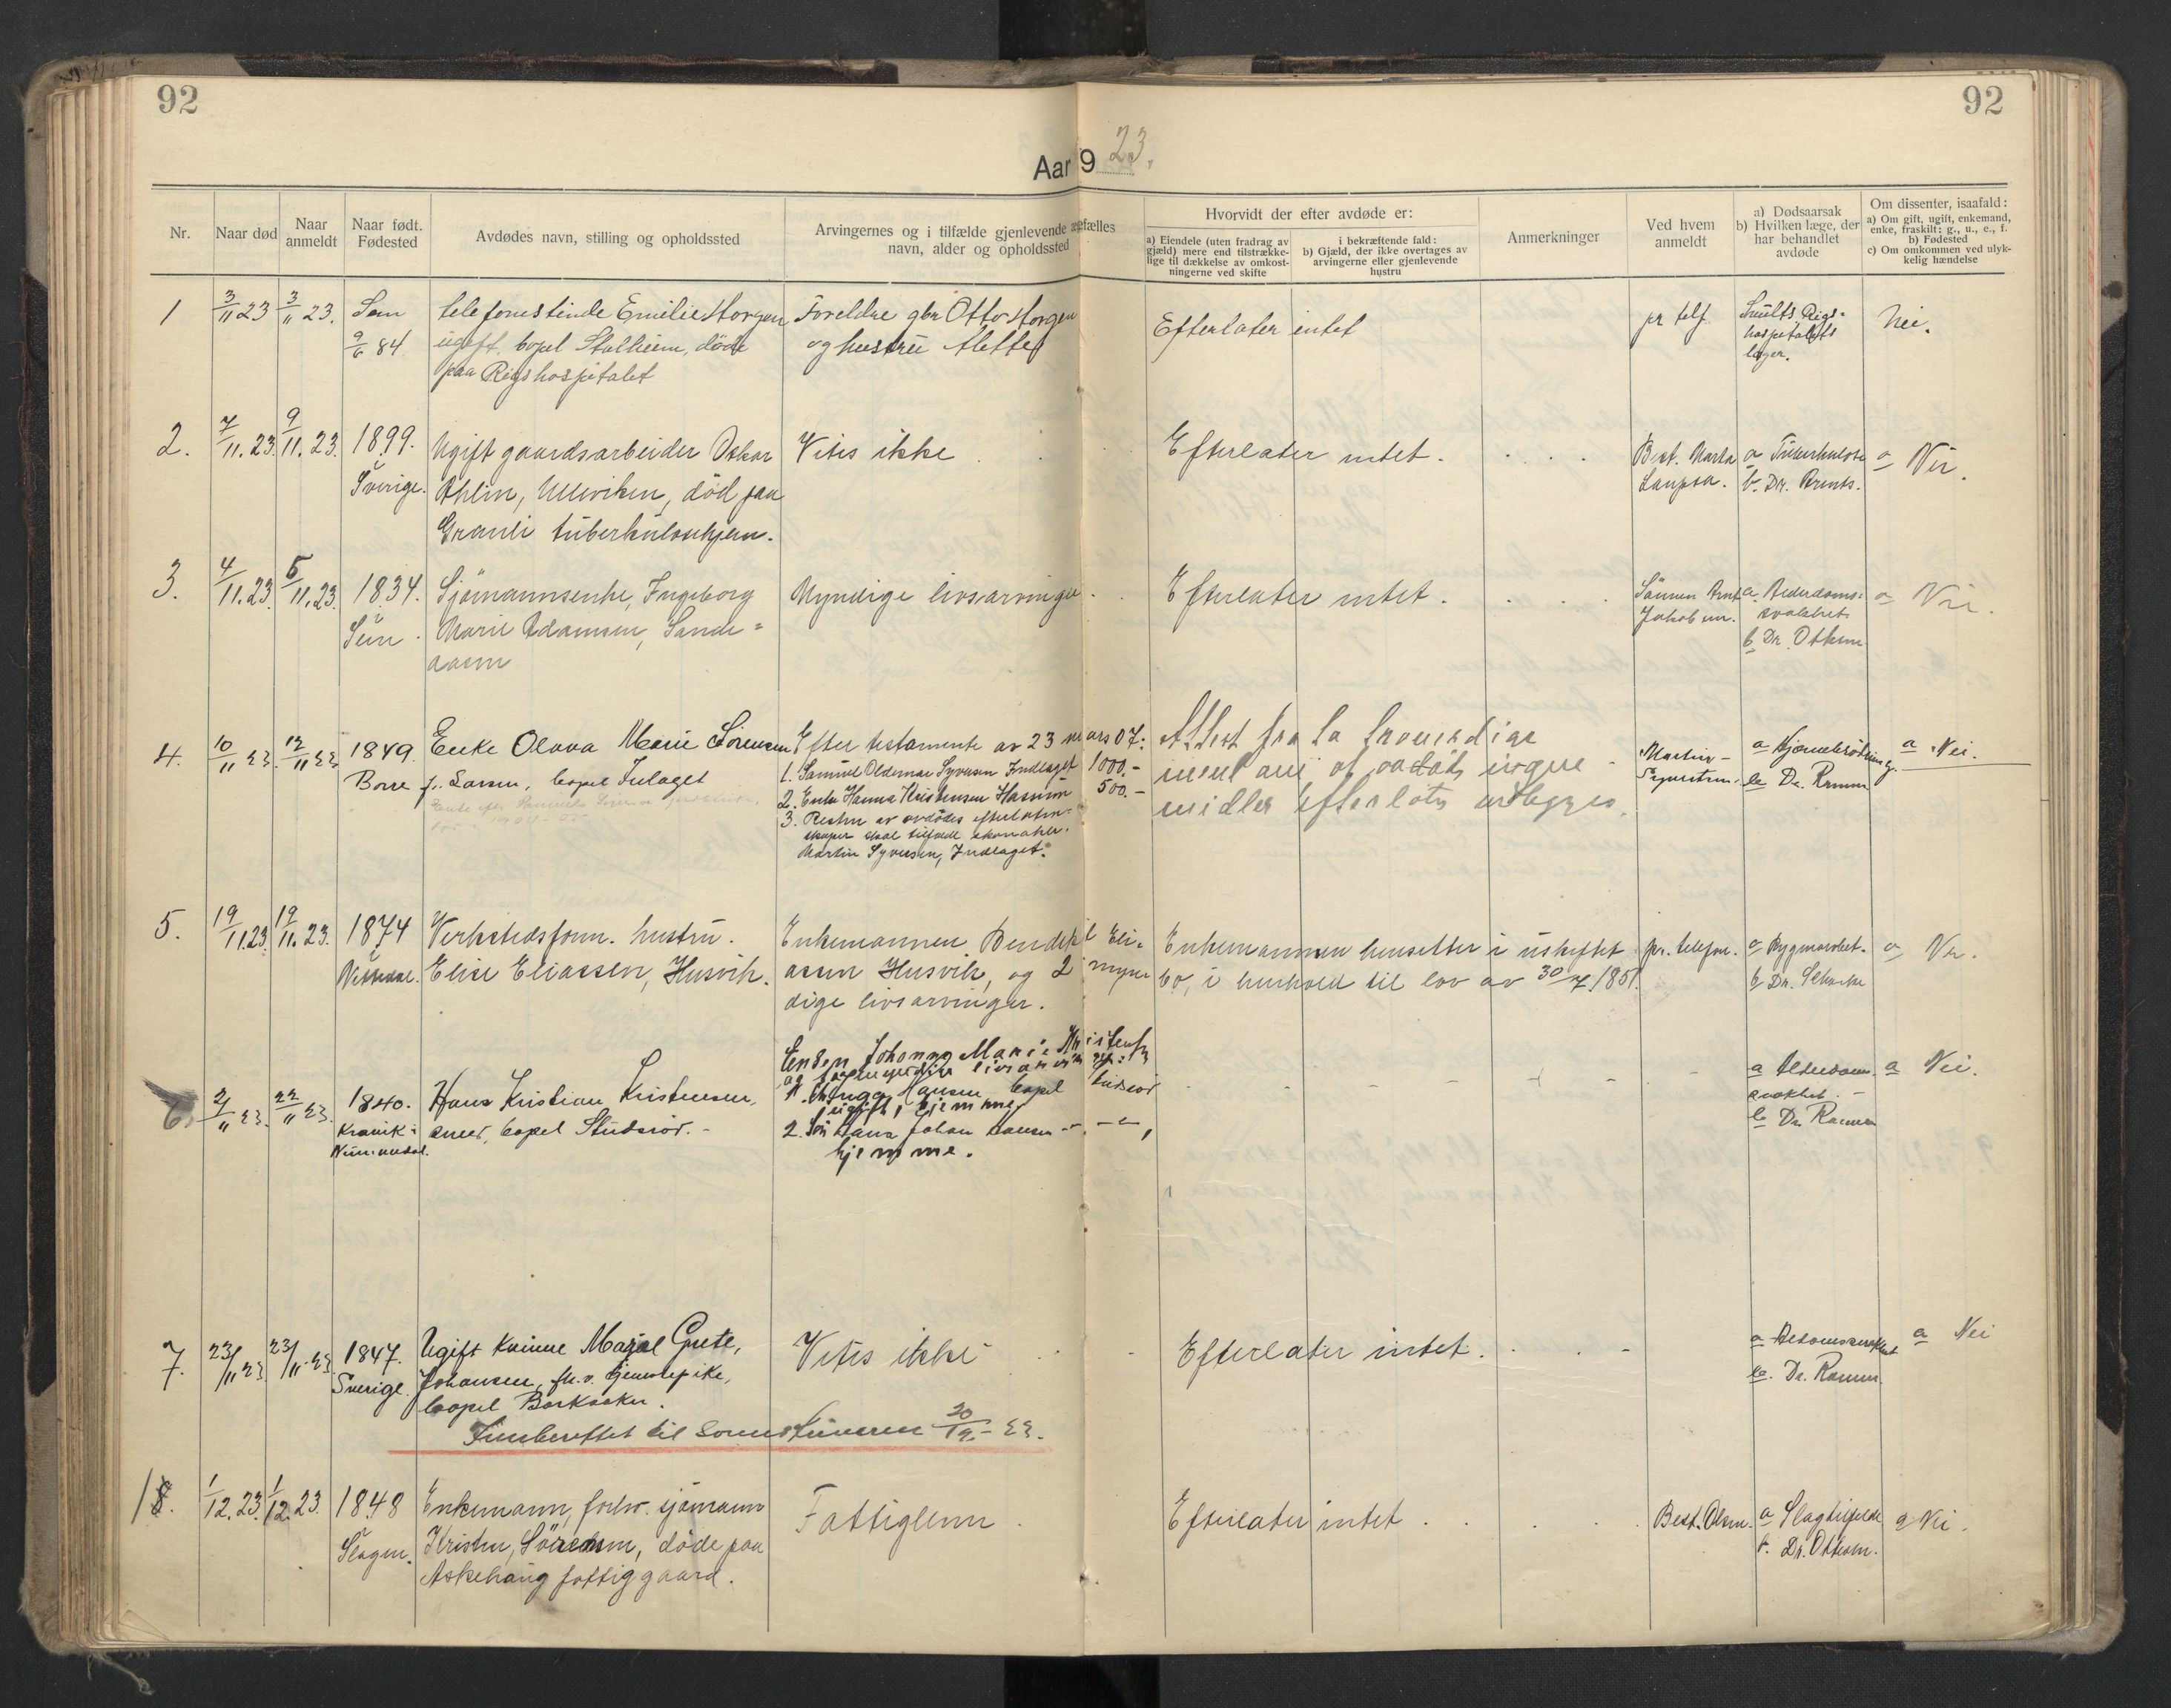 92
92
Aar 19 23.
Nr.
Naar død
Naar anmeldt
Naar født. Fødested
Avdødes navn, stilling og opholdssted
Arvingernes og i tilfælde gjenlevende ægtefælles navn, alder og opholdssted
Hvorvidt der efter avdøde er:
a) Eiendele (uten fradrag av gjæld) mere end tilstrækkelige til dækkelse av omkostningerne ved skifte
i bekræftende fald: b) Gjæld, der ikke overtages av arvingerne eller gjenlevende hustru
Anmerkninger
Ved hvem anmeldt
a) Dødsaarsak b) Hvilken læge, der har behandlet avdøde
Om dissenter, isaafald: a) Om gift, ugift, enkemand, enke, fraskilt: g., u., e., f. b) Fødested c) Om omkommen ved ulykkelig hændelse
1
3/11 23
3/11 23.
Sem
9/6 84
telefonistinde Emilie Horgen
ugift, bopel Stalheim, døde
paa Rigshospitalet
Foreldre gbr Otto Horgen
og hustru
Efterlater intet
pr telf.
Rigs=
hospitalets
læger.
Nei.
2.
7/11.23.
9/11.23.
1899.
Sverige.
Ugift gaardsarbeider Oskar
Ahlin, Ulleviken, død paa
Granli tuberkulosehjem.
Vites ikke
Efterlater intet.
Best. Marta
a Tuberkulose
b. Dr. Arents.
a Nei.
3.
4/11.23.
5/11.23.
1834.
Sem.
Sjømannsenke, Ingeborg
Marie Adamsen, Sande=
aasen
Myndige livsarvinger
Efterlater intet.
Sønnen Arnt
Jakobsen.
a. Alderdoms=
svakhet
b Dr. Ottesen
a Nei.
4.
10/11 23.
12/11 23
1849
Borre
Enke Olava Marie Sørensen
f. Larsen, bopel Inlaget
Efter testamente av 23 mars 07:
1. Samuel Oldemar Syvertsen Indlaget 1000.-
2. Enke Hanna Kristensen Hasum 500.-
3. Resten av avdødes efterlaten-
skaper skal tilfalde
Martin Syvertsen, Indlaget.
Attest fra to troverdige
mend om at avdøde ingen
midler efterlot, vedlegges.
Martin
a Hjernebrødning
b Dr. Ramm
a Nei.
5.
19/11.23.
19/11.23.
1874
Verkstedsform. hustru.
Elise Eliassen, Husvik.
Enkemannen Bendik Eli-
assen Husvik, og 2 myn-
dige livsarvinger.
Enkemannen hensetter i uskiftet
bo, i henhold til lov av 30/7 1851.
pr. telefon.
b Dr. Scharke
a Nei.
6.
2/11 23.
22/11 23.
1840.
Hans Kristian Kristensen,
bopel Studsrød.-
Enken Johanna Marie Kristensen
og myndige livsarvinger:
1. Hansen bopel Studsrød
ugift, hjemme,
2. Søn Hans Johan Hansen -"- -"-,
hjemme.
a Alderdoms-
svakhet.-
b Dr. Ramm
a Nei.
7.
23/11 23
23/11.23
1847.
Sverige.
Ugift kvinne Majal Grete,
Johansen, fh.v. tjenestepike,
bopel Barkaaker.
Vites ikke
Efterlater intet.
a Aldomssvakhet
b. Dr. Ramm.
a Nei
Innberettet til Sorenskriveren 20/12.- 23.
18.
1/12.23.
1/12.23.
1848
Slagen.
Enkemann, forhv. sjømann
Kristen, Sørensen, døde paa
Askehaug fattiggaard.
Fattiglem
Efterlater intet
Best. Olsen.
a Slagtilfelde
b. Dr. Ottesen.
a Nei.